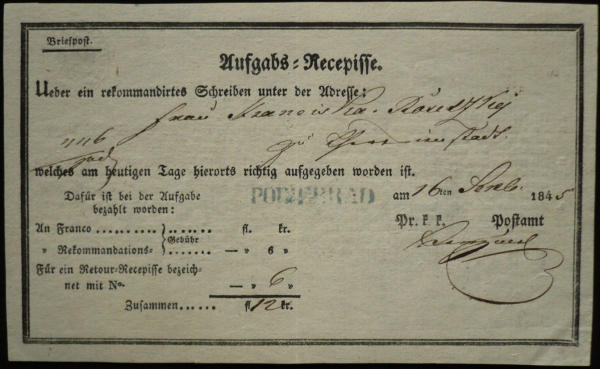 Briefpost.
Aufgabs-Recepisse.
Ueber ein rekommandirtes Schreiben unter der Adresse:
Frau Franciska
446 zu
welches am heutigen Tage hierorts richtig aufgegeben worden ist.
PODIEBRAD
Dafür ist bei der Aufgabe bezahlt worden:
am 16ten 1845
An Franco .......... Gebühr ...... fl. kr.
„ Rekommandations- — „ 6 „
Pr. k. k. Postamt
Für ein Retour-Recepisse bezeich-
net mit No. — „ 6 „
Zusammen...... fl. 12 kr.